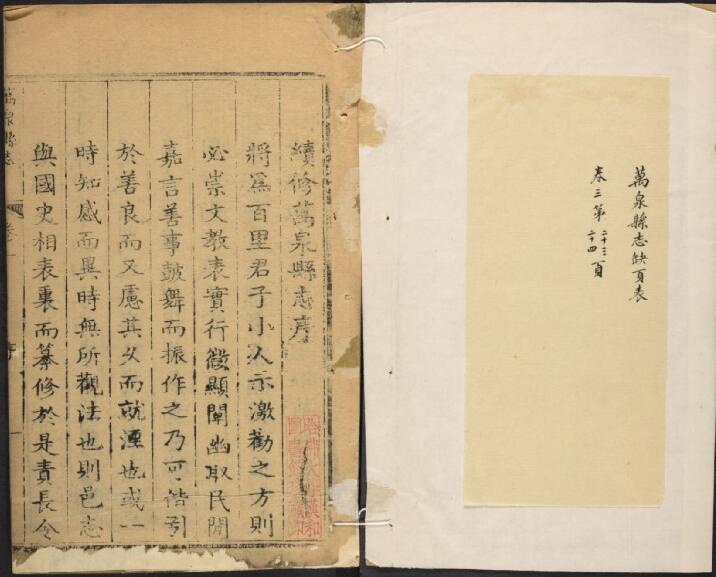 萬泉縣志缺頁表
卷三第二十三二十四頁
續修萬泉縣志序
將爲百里君子小人示激勸之方則
必崇文教表實行微顯闡幽取民間
嘉言善事鼓舞而振作之乃可偕引
於善良而又慮其久而就湮也或一
時知感而異時無所觀法也則邑志
與國史相表裏而纂修於是責長令
萬泉縣志 卷一 序 一